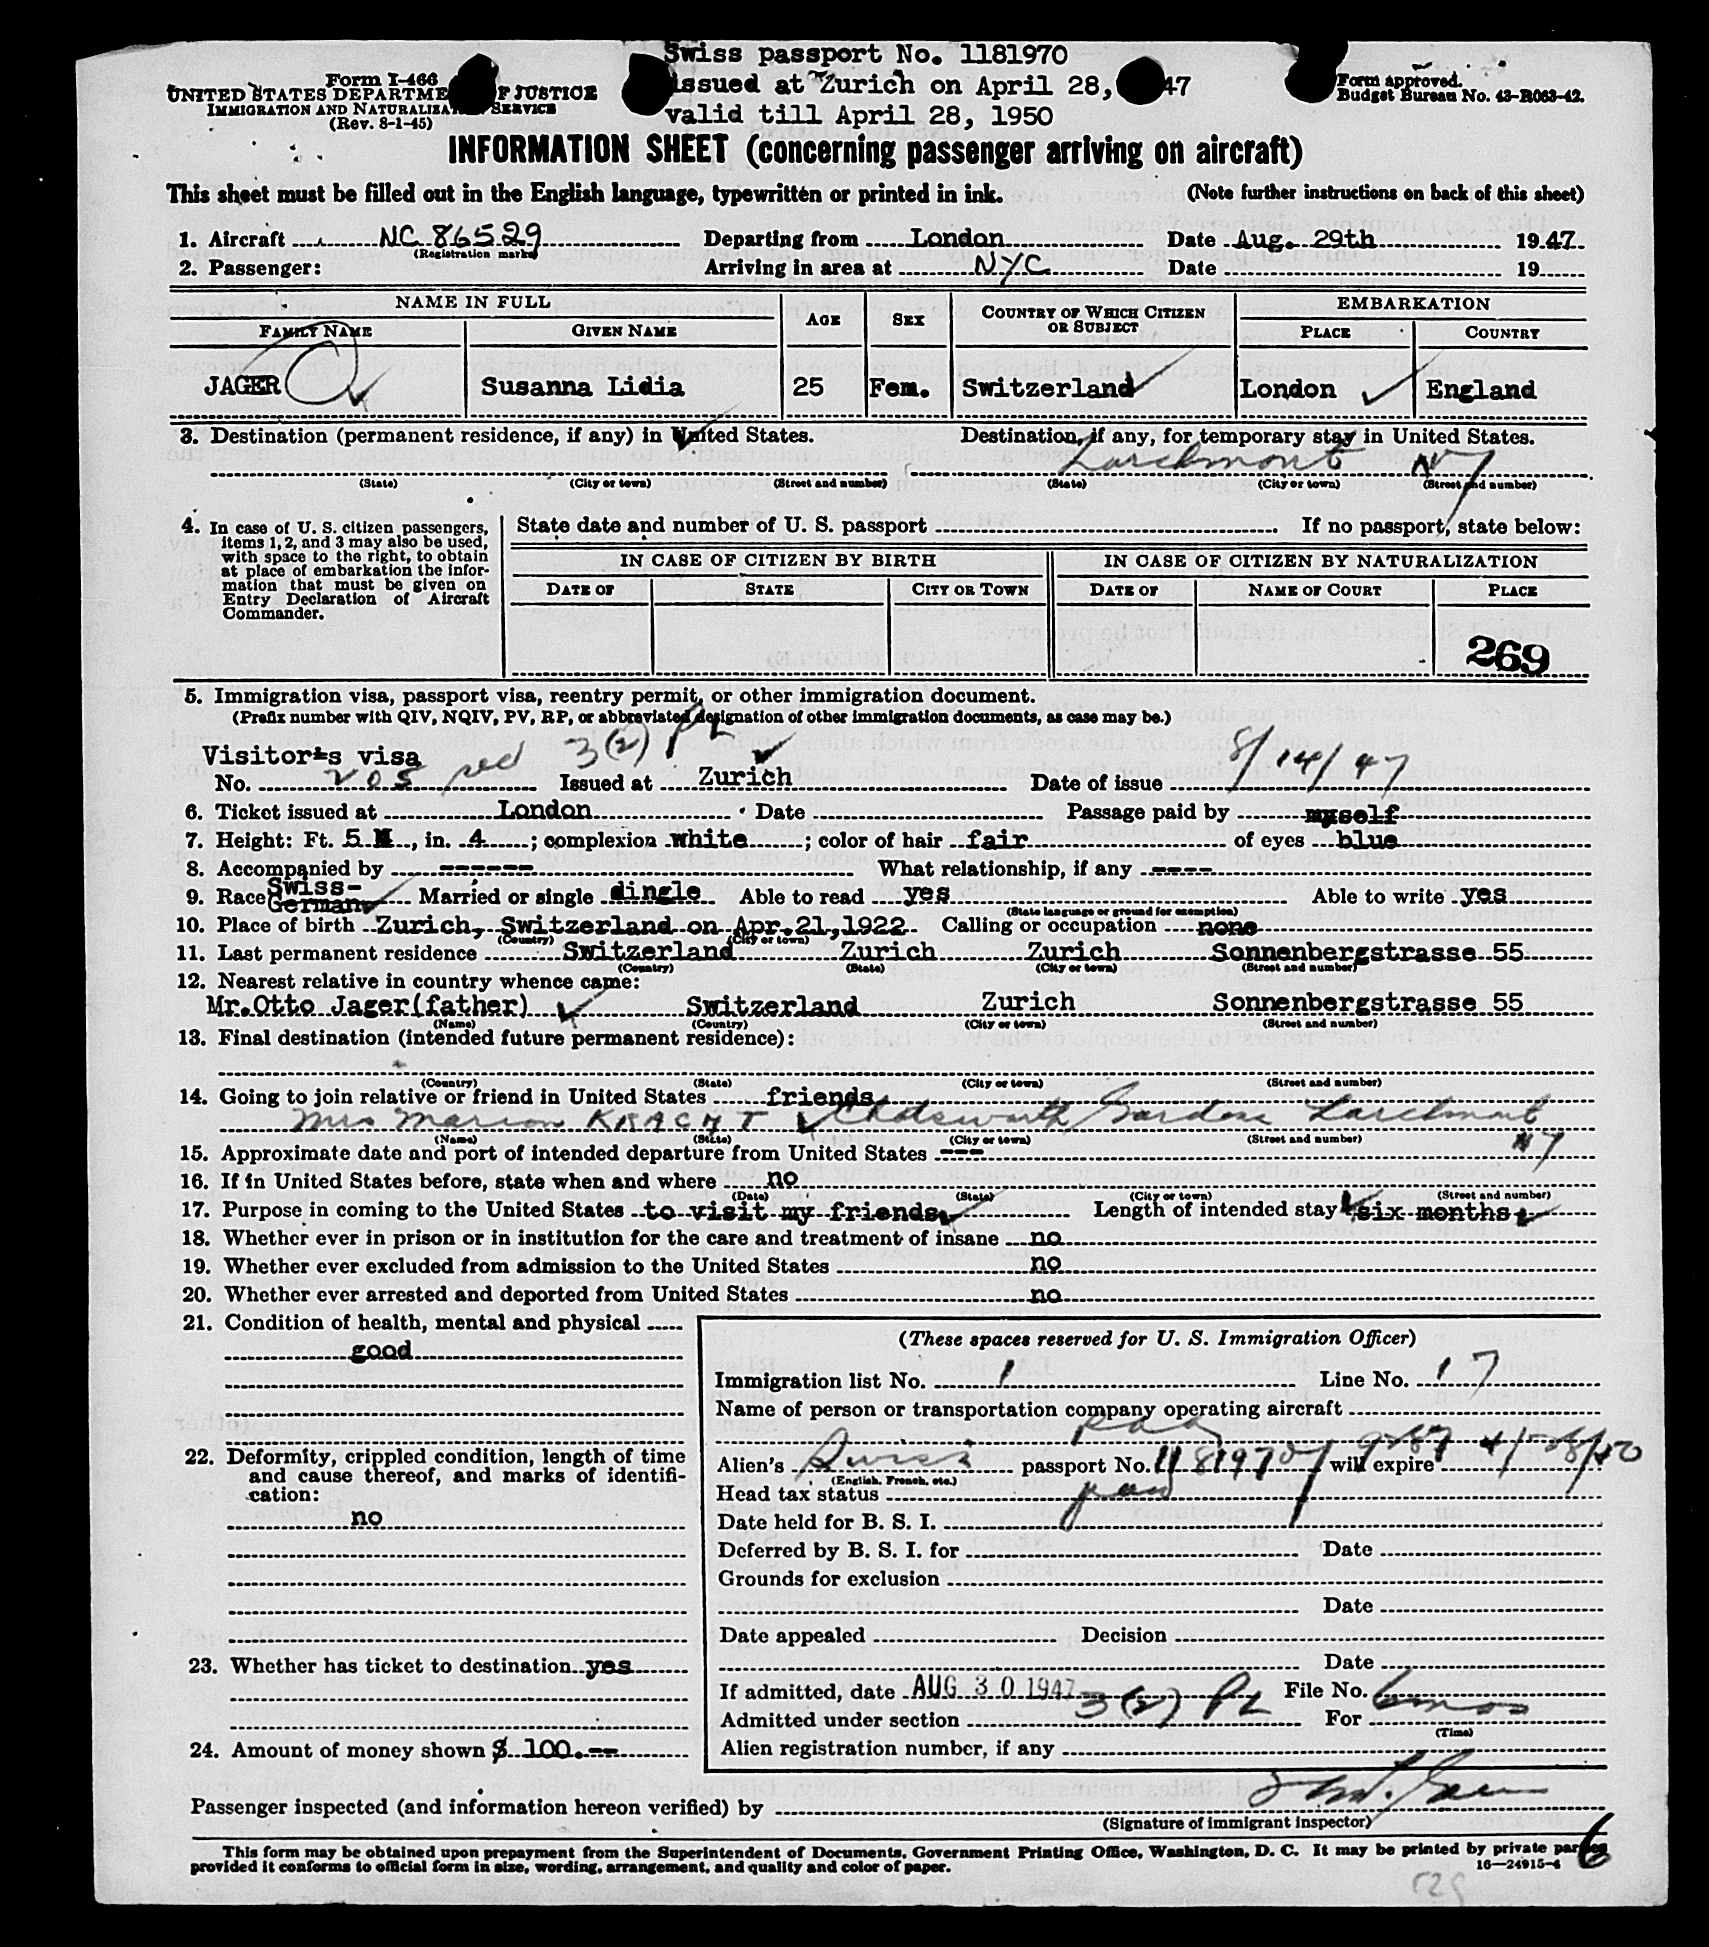 Swiss passport No. 1181970
Form I-466
UNITED STATES DEPARTME F JUSTICE
issued at Zurich on April 28, 47
Form approved.
IMMIGRATION AND NATURALIZA SERVICE
Budget Bureau No. 43-R063-42.
(Rev. 8-1-45)
valid till April 28, 1950
INFORMATION SHEET (concerning passenger arriving on aircraft)
This sheet must be filled out in the English language, typewritten or printed in ink. (Note further instructions on back of this sheet)
1. Aircraft NC 86529 Departing from London Date Aug. 29th 1947
(Registration marks)
2. Passenger: Arriving in area at NYC Date 19
NAME IN FULL AGE SEX COUNTRY OF WHICH CITIZEN OR SUBJECT EMBARKATION
FAMILY NAME GIVEN NAME PLACE COUNTRY
JAGER Susanna Lidia 25 Fem. Switzerland London England
3. Destination (permanent residence, if any) in United States. Destination, if any, for temporary stay in United States.
Larchmont NY
(State) (City or town) (Street and number) (State) (City or town) (Street and number)
4. In case of U. S. citizen passengers, items 1, 2, and 3 may also be used, with space to the right, to obtain at place of embarkation the information that must be given on Entry Declaration of Aircraft Commander.
State date and number of U. S. passport If no passport, state below:
IN CASE OF CITIZEN BY BIRTH IN CASE OF CITIZEN BY NATURALIZATION
DATE OF STATE CITY OR TOWN DATE OF NAME OF COURT PLACE
269
5. Immigration visa, passport visa, reentry permit, or other immigration document.
(Prefix number with QIV, NQIV, PV, RP, or abbreviated designation of other immigration documents, as case may be.)
Visitor's visa 3(2) PL
No. 205 Issued at Zurich Date of issue 8/14/47
6. Ticket issued at London Date Passage paid by myself
7. Height: Ft. 5, in. 4; complexion white; color of hair fair of eyes blue
8. Accompanied by ------ What relationship, if any ----
9. Race Swiss-German Married or single dingle Able to read yes Able to write yes
(State language or ground for exemption)
10. Place of birth Zurich, Switzerland on Apr.21,1922 Calling or occupation none
(Country) (City or town)
11. Last permanent residence Switzerland Zurich Zurich Sonnenbergstrasse 55
(Country) (State) (City or town) (Street and number)
12. Nearest relative in country whence came:
Mr.Otto Jager(father) Switzerland Zurich Sonnenbergstrasse 55
(Name) (Country) (City or town) (Street and number)
13. Final destination (intended future permanent residence):
(Country) (State) (City or town) (Street and number)
14. Going to join relative or friend in United States friends
Mrs Marion KRACHT Chatsworth Gardens Larchmont NY
(Name) (State) (City or town) (Street and number)
15. Approximate date and port of intended departure from United States ---
16. If in United States before, state when and where no
(Date) (State) (City or town) (Street and number)
17. Purpose in coming to the United States to visit my friends Length of intended stay six months
18. Whether ever in prison or in institution for the care and treatment of insane no
19. Whether ever excluded from admission to the United States no
20. Whether ever arrested and deported from United States no
21. Condition of health, mental and physical
good
22. Deformity, crippled condition, length of time and cause thereof, and marks of identification:
no
23. Whether has ticket to destination yes
24. Amount of money shown $ 100.--
(These spaces reserved for U. S. Immigration Officer)
Immigration list No. 1 Line No. 17
Name of person or transportation company operating aircraft
PAA
Alien's Swiss passport No. 1181970 will expire 4/28/50
(English, French, etc.)
Head tax status
Date held for B. S. I.
Deferred by B. S. I. for Date
Grounds for exclusion
Date
Date appealed Decision
Date
If admitted, date AUG 30 1947 File No.
Admitted under section 3(2) PL For 6 mos
(Time)
Alien registration number, if any
Passenger inspected (and information hereon verified) by
(Signature of immigrant inspector)
This form may be obtained upon prepayment from the Superintendent of Documents, Government Printing Office, Washington, D. C. It may be printed by private parties
provided it conforms to official form in size, wording, arrangement, and quality and color of paper. 16—24915-4
6